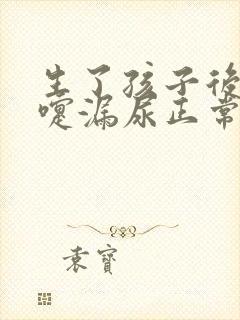 生了孩子後打
嚏漏尿正常
袁寶